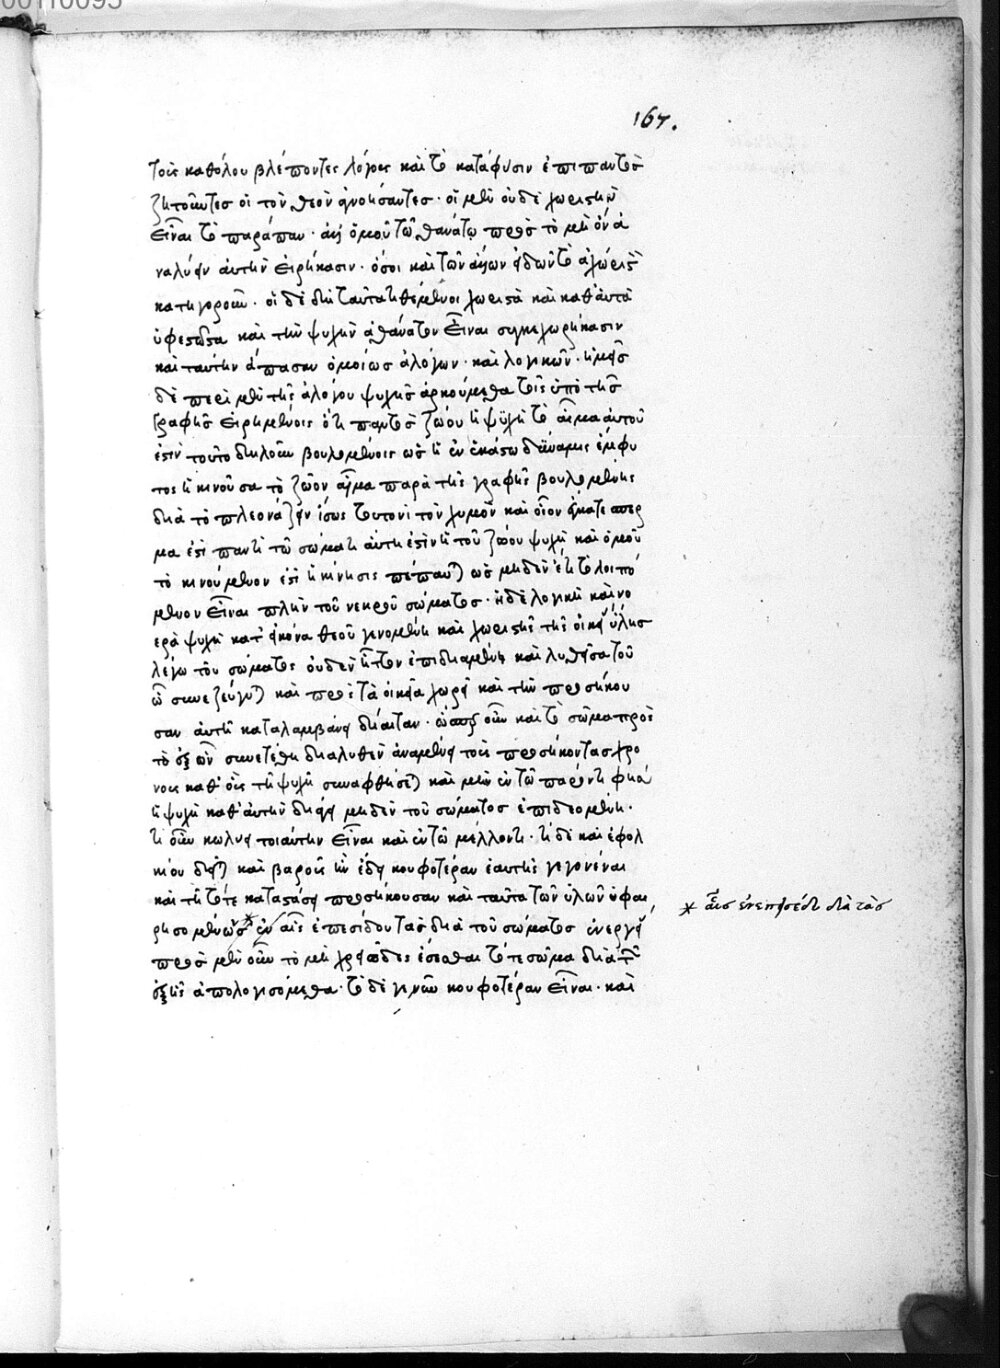 00110095
167.
τοῖς καθόλου βλέποντες λόγοις καὶ τὸ κατὰ φύσιν ἐπὶ παντὸς
ζητοῦντες οἱ τὸν θεὸν ἀγνοήσαντες· οἱ μὲν οὐδὲ χωριστὴν
εἶναι τὸ παράπαν· ἀλλ' ὁμοῦ τῷ θανάτῳ πρὸς τὸ μὴ ὂν ἀ
ναλύειν αὐτὴν εἰρήκασιν· ὅσοι καὶ τῶν ἄλλων εἰδῶν τὸ ἀχώριστον
κατηγοροῦσιν· οἱ δὲ δὴ ταῦτα τιθέμενοι χωριστὰ καὶ καθ' αὑτὰ
ὑφεστῶτα καὶ τὴν ψυχὴν ἀθάνατον εἶναι συγκεχωρήκασιν
καὶ ταύτην ἅπασαν ὁμοίως ἀλόγων· καὶ λογικῶν· ἡμεῖς
δὲ περὶ μὲν τῆς ἀλόγου ψυχῆς ἀρκούμεθα τοῖς ὑπὸ τῆς
γραφῆς εἰρημένοις ὅτι παντὸς ζώου ἡ ψυχὴ τὸ αἷμα αὐτοῦ
ἐστὶν τοῦτο δηλοῦν βουλομένοις ὡς ἡ ἐν ἑκάστῳ δύναμις ἔμφυ
τος ἡ κινοῦσα τὸ ζῶον αἷμα παρὰ τῆς γραφῆς βουλομένης
διὰ τὸ πλεονάζειν ἴσως τουτονὶ τὸν χυμὸν καὶ οἷον
μα ἐστὶ παντὶ τῷ σώματι αὕτη ἐστὶν ἡ τοῦ ζώου ψυχὴ καὶ ὁμοῦ
τὸ κινούμενον ἐστὶ ἡ κίνησις πέπαυται ὡς μηδὲν ἔτι τὸ λοιπό
μενον εἶναι πλὴν τοῦ νεκροῦ σώματος· ἡ δὲ λογικὴ καὶ νο
ερὰ ψυχὴ κατ' εἰκόνα θεοῦ γενομένη καὶ χωριστὴ τῆς οἰκείας ὕλης
λέγω τοῦ σώματος οὐδὲν ἧττον ἐπιδιαμένει καὶ λυθεῖσα τοῦ
ᾧ συνέζευγται καὶ πρὸς τὰ οἰκεῖα χωρεῖ καὶ τὴν προσήκου
σαν αὐτῇ καταλαμβάνει δίαιταν· ὥσπερ οὖν καὶ τὸ σῶμα πρὸς
τὸ ἐξ ὧν συνετέθη διαλυθὲν ἀναμένει τοὺς προσήκοντας χρό
νους καθ' οὓς τῇ ψυχῇ συναφθήσεται καὶ μὲν ἐν τῷ παρόντι
ἡ ψυχὴ καθ' αὑτὴν μηδὲν τοῦ σώματος ἐπιδεομένη·
τί οὖν κωλύει τοιαύτην εἶναι καὶ ἐν τῷ μέλλοντι· τί δὲ καὶ ἐφολ
κίου δεῖται καὶ βαροῦς ἣν ἔδει κουφοτέραν ἑαυτῆς γεγονέναι
καὶ τῇ τότε καταστάσει προσήκουσαν καὶ ταῦτα τῶν ὑλῶν ὑφαι
ρησομένων * ἐν αἷς ἐπεσίδου τὰς διὰ τοῦ σώματος ἐνεργεί
πρὸς μὲν οὖν τὸ μὴ χρειῶδες ἔσεσθαι τότε σῶμα διὰ τῶν
ἑξῆς ἀπολογισόμεθα· τὸ δὲ γε νῦν κουφοτέραν εἶναι· καὶ
* αἷς ἐνεπ διὰ τὰς